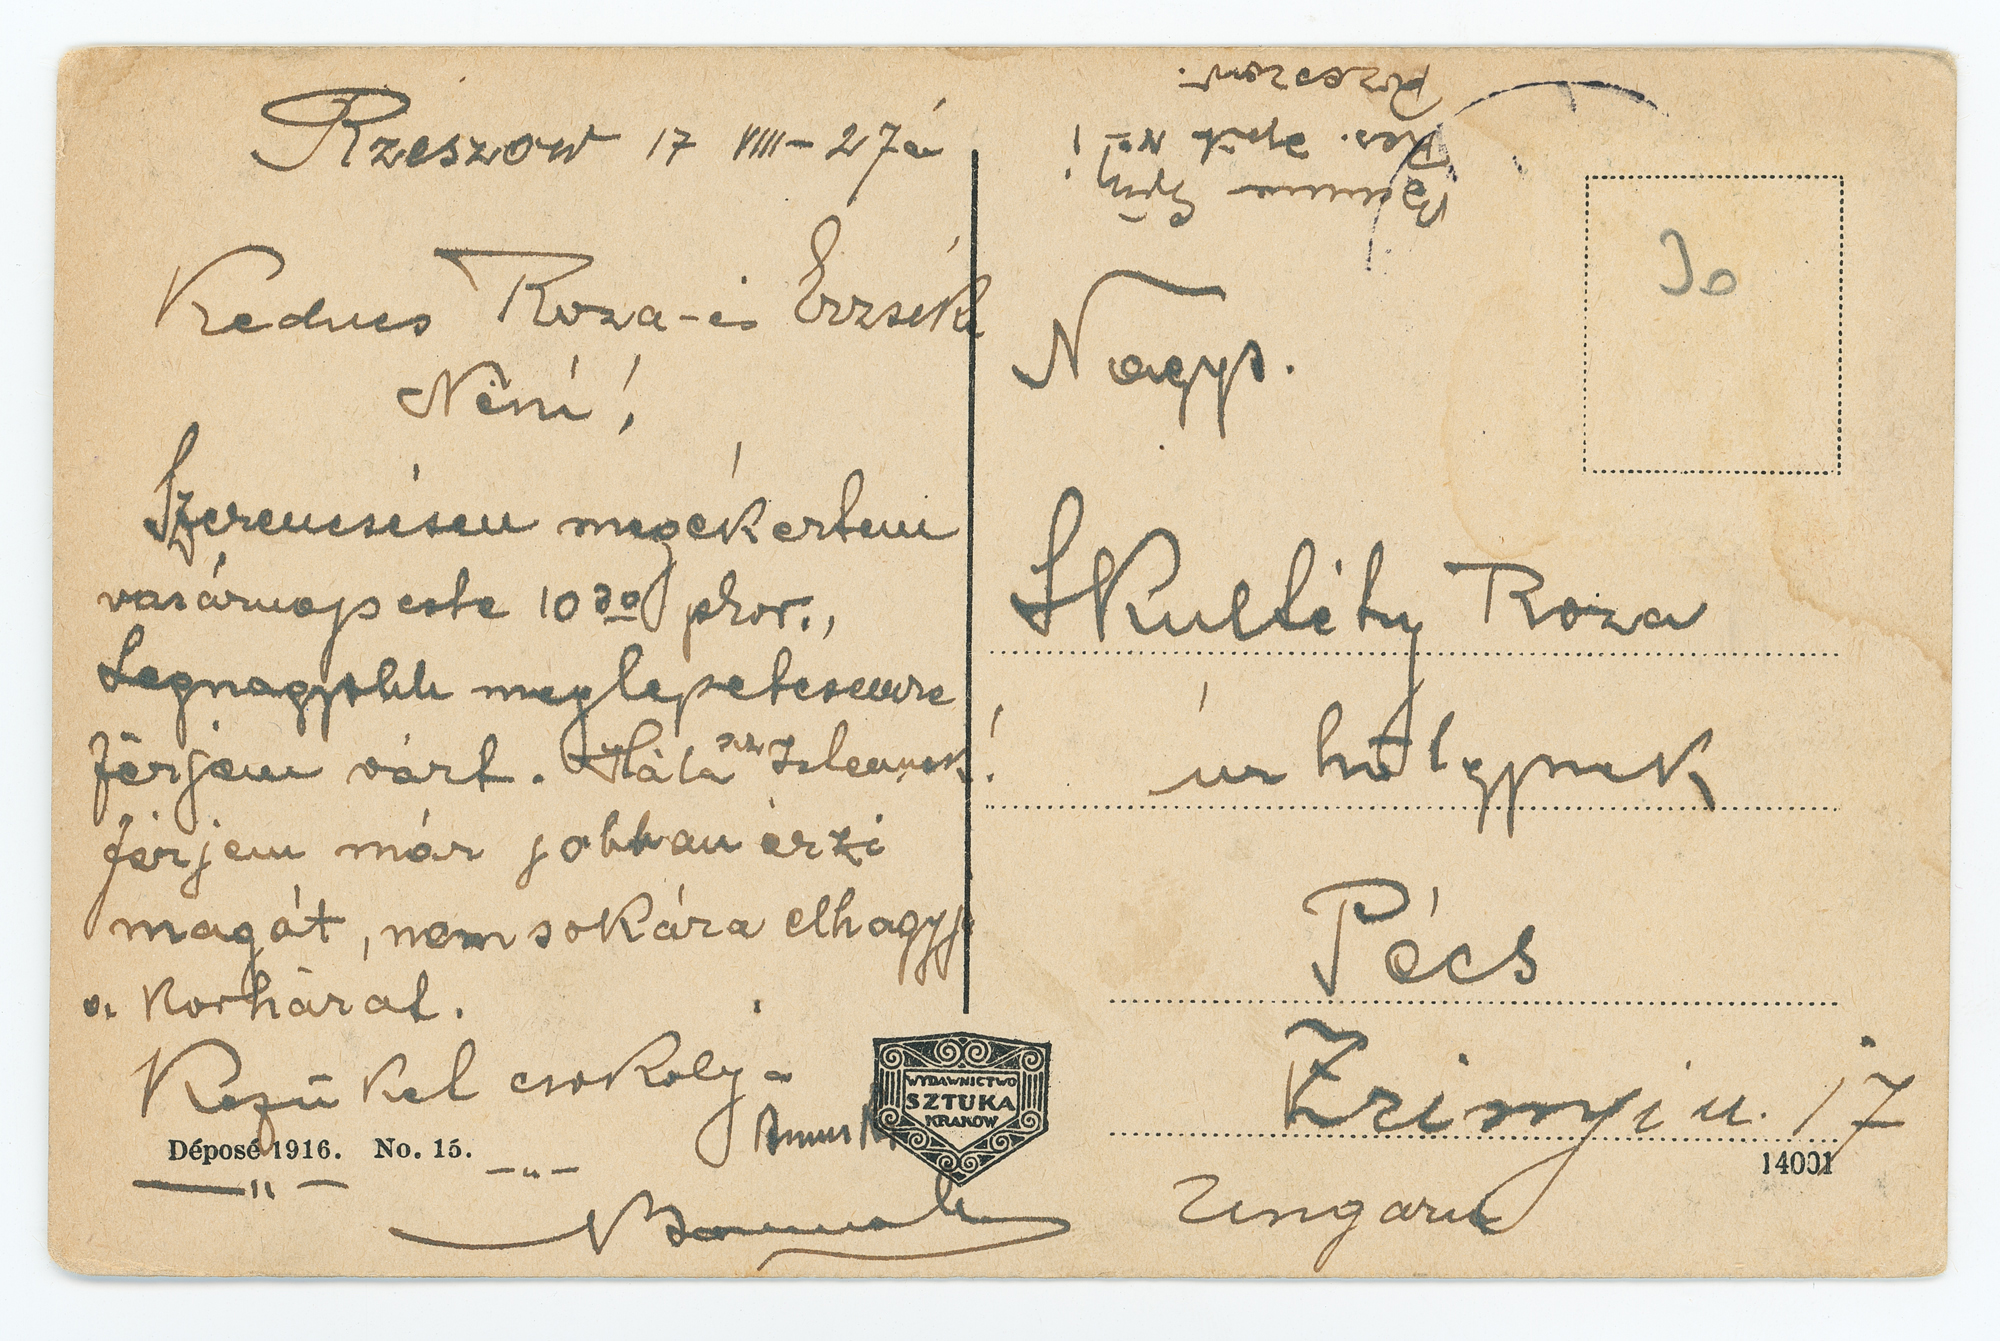 Rzeszow 17 VIII-27én
Kedves Roza-és Erzsék
Néni!
Szerencsésen megékertem
vasárnap este 10 30 pkor.,
Legnagyobb meglepetesemre
férjem várt. Hála az Istennek!
férjem már jobban érzi
magát, nemsokára elhagyja
a korházat.
Kezüket csokolja
Déposé 1916. No. 15.
WYDAWNICTWO
SZTUKA
KRAKÓW
Rzeszow.
Nagys.
Skultéty Roza
úr hölgynek
Pécs
Zrinyi u. 17
14001
Ungarn
30